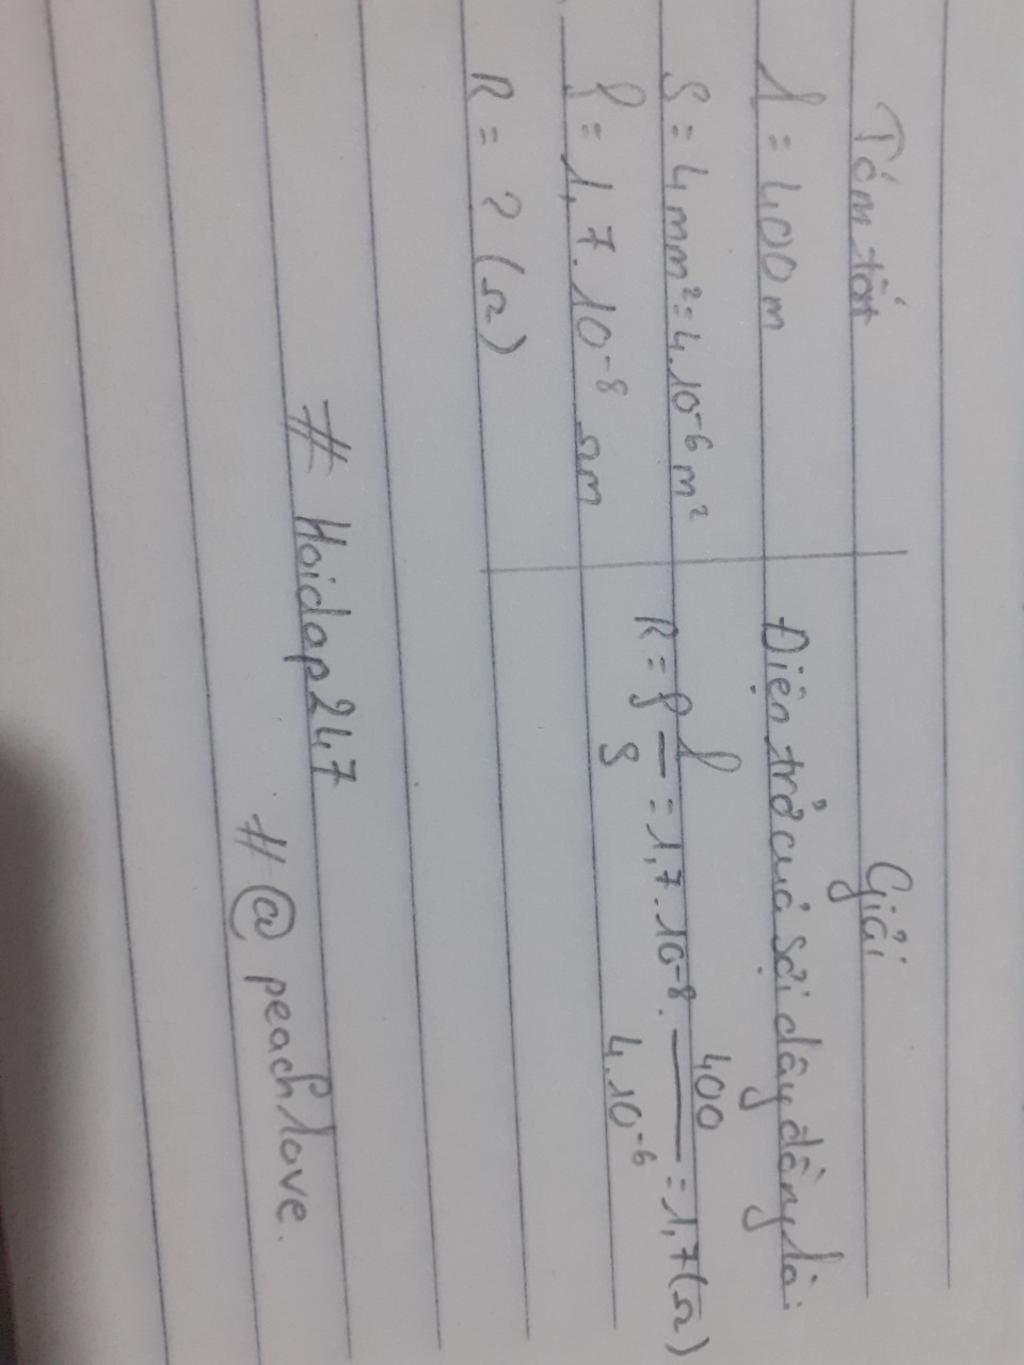 Tóm tắt
l = 400m
S = 4mm² = 4.10⁻⁶ m²
ρ = 1,7.10⁻⁸ Ωm
R = ? (Ω)
Giải
Điện trở của sợi dây đồng là:
R = ρ l/S = 1,7.10⁻⁸. 400/4.10⁻⁶ = 1,7(Ω)
# Hoidap247
# @ peachlove.